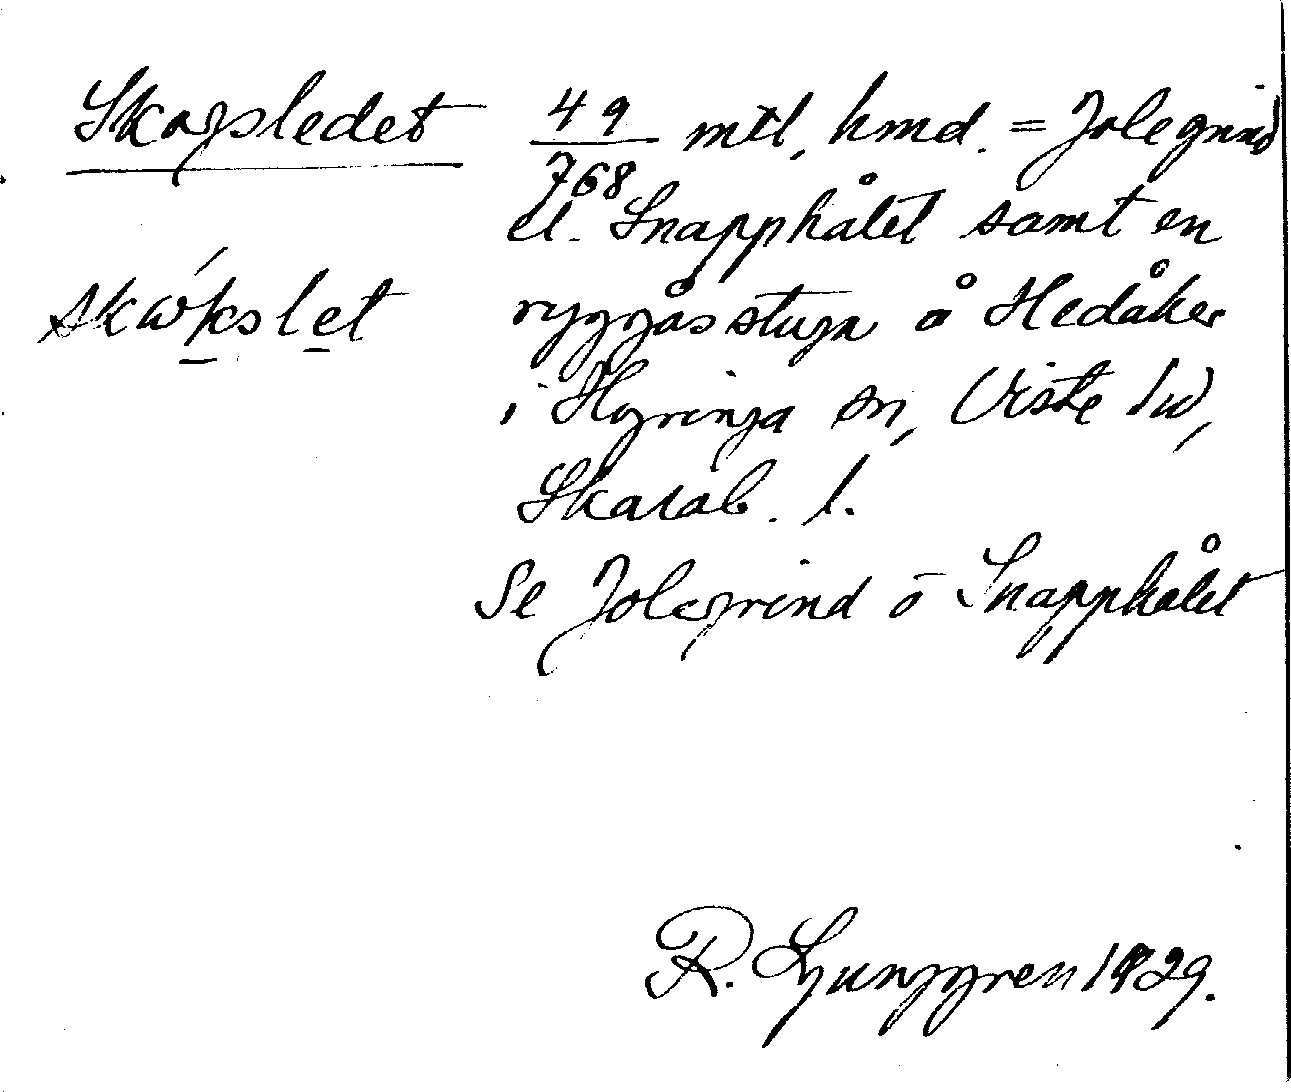 Skogsledet 49/768 mtl, hmd. = Jolegrind
el. Snapphålet samt en
skωkslet ryggåsstuga å Hedåker
i Hyringa sn, Viste hd,
Skarab. l.
Se Jolegrind o Snapphålet
R. Ljunggren 1929.